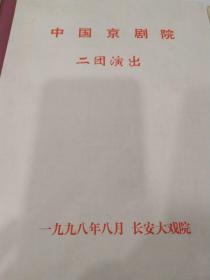 中国京剧院
二团演出
一九九八年八月 长安大戏院